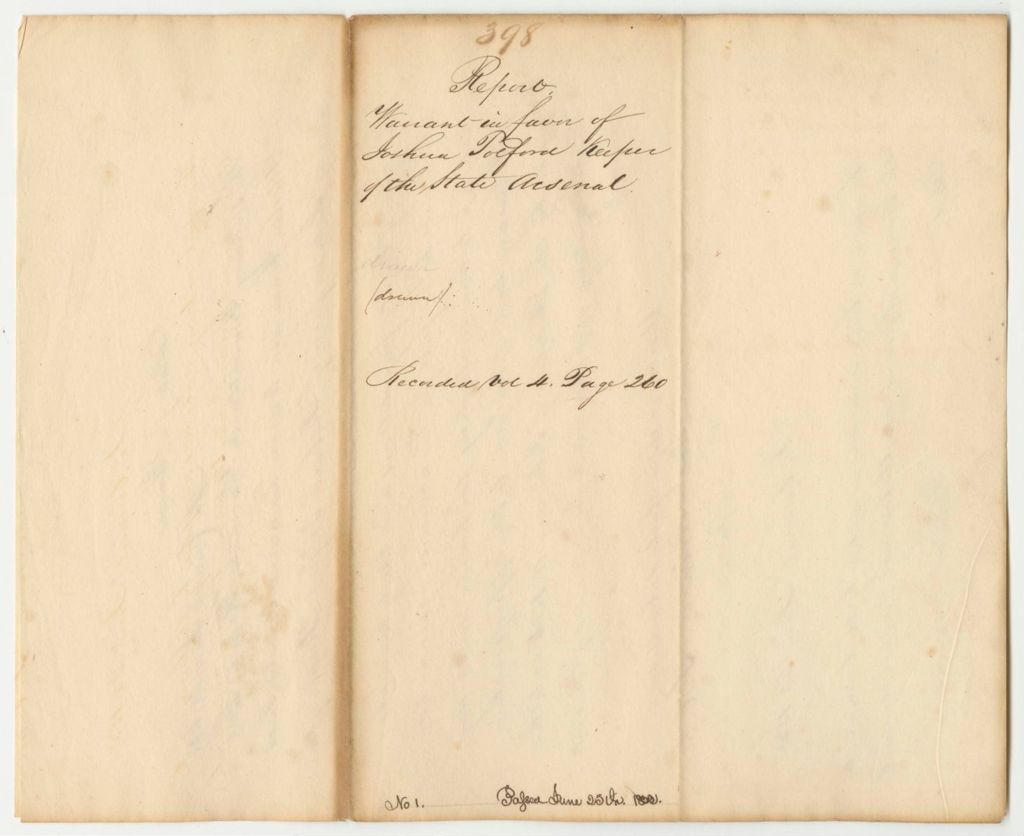 398
Report.
Warrant in favor of
Joshua Tolford Keeper
of the State Arsenal.
drawn
(drawn):
Recorded Vol 4. Page 260
No 1.
Passed June 25th.